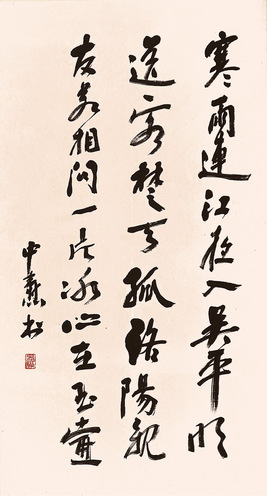 寒雨連江夜入吳平明
送客楚天孤洛陽親
友若相問一片冰心在玉壺